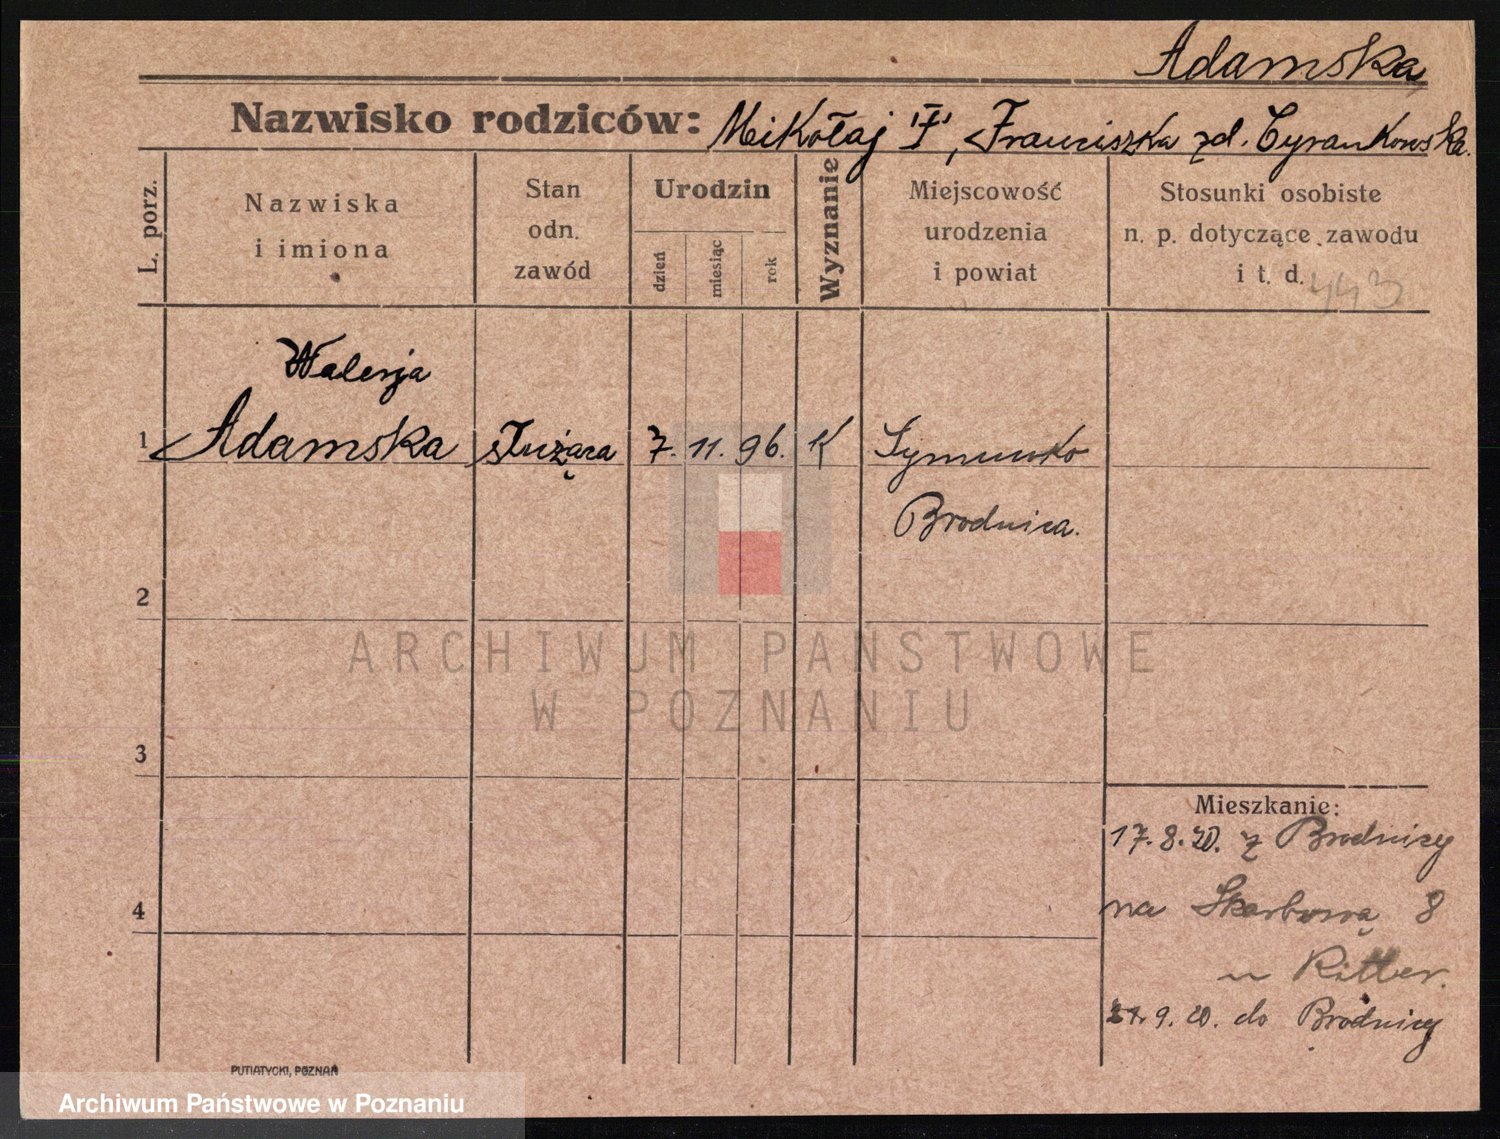 Adamska
Nazwisko rodziców: Mikołaj "†", Franciszka zd. Cyrankowska.
L. porz.
Nazwiska
i imiona
Stan
odn.
zawód
Urodzin
dzień
miesiąc
rok
Wyznanie
Miejscowość
urodzenia
i powiat
Stosunki osobiste
n. p. dotyczące zawodu
i t. d.
443
Walerja
1 Adamska służąca 7. 11. 96. K
Brodnica.
2
3
4
ARCHIWUM PAŃSTWOWE
W POZNANIU
Mieszkanie:
17. 8. 20. z Brodnicy
na Skarbową 8
u Ritter.
9. 20. do Brodnicy
PUTIATYCKI, POZNAŃ
Archiwum Państwowe w Poznaniu